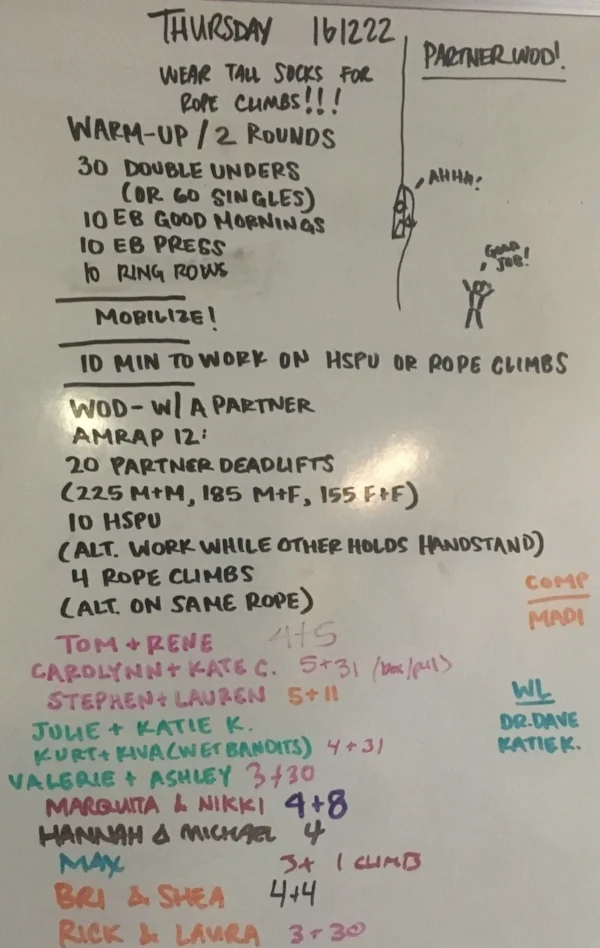 THURSDAY 161222
PARTNER WOD!
WEAR TALL SOCKS FOR
ROPE CLIMBS!!!
WARM-UP / 2 ROUNDS
30 DOUBLE UNDERS
(OR 60 SINGLES)
10 EB GOOD MORNINGS
10 EB PRESS
10 RING ROWS
AHHA!
GOOD
JOB!
MOBILIZE!
10 MIN TO WORK ON HSPU OR ROPE CLIMBS
WOD- W/ A PARTNER
AMRAP 12:
20 PARTNER DEADLIFTS
(225 M+M, 185 M+F, 155 F+F)
10 HSPU
(ALT. WORK WHILE OTHER HOLDS HANDSTAND)
4 ROPE CLIMBS
(ALT. ON SAME ROPE)
TOM + RENE 4+5
CAROLYNN + KATE C. 5+31 (box/pull)
STEPHEN + LAUREN 5+11
JULIE + KATIE K.
KURT + KIVA (WET BANDITS) 4+31
VALERIE + ASHLEY 3+30
MARQUITA & NIKKI 4+8
HANNAH & MICHAEL 4
MAX 3+ 1 CLIMB
BRI & SHEA 4+4
RICK & LAURA 3+30
COMP
MADI
WL
DR. DAVE
KATIE K.